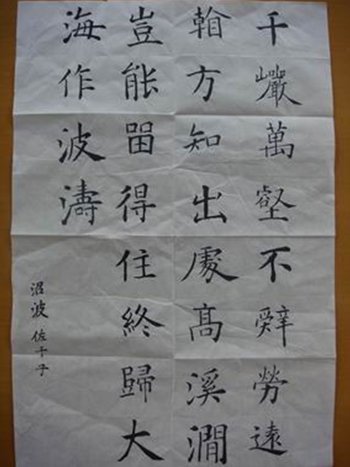 千巖萬壑不辭勞遠
看方知出處髙溪澗
豈能留得住終歸大
海作波濤
沼波 佐千子